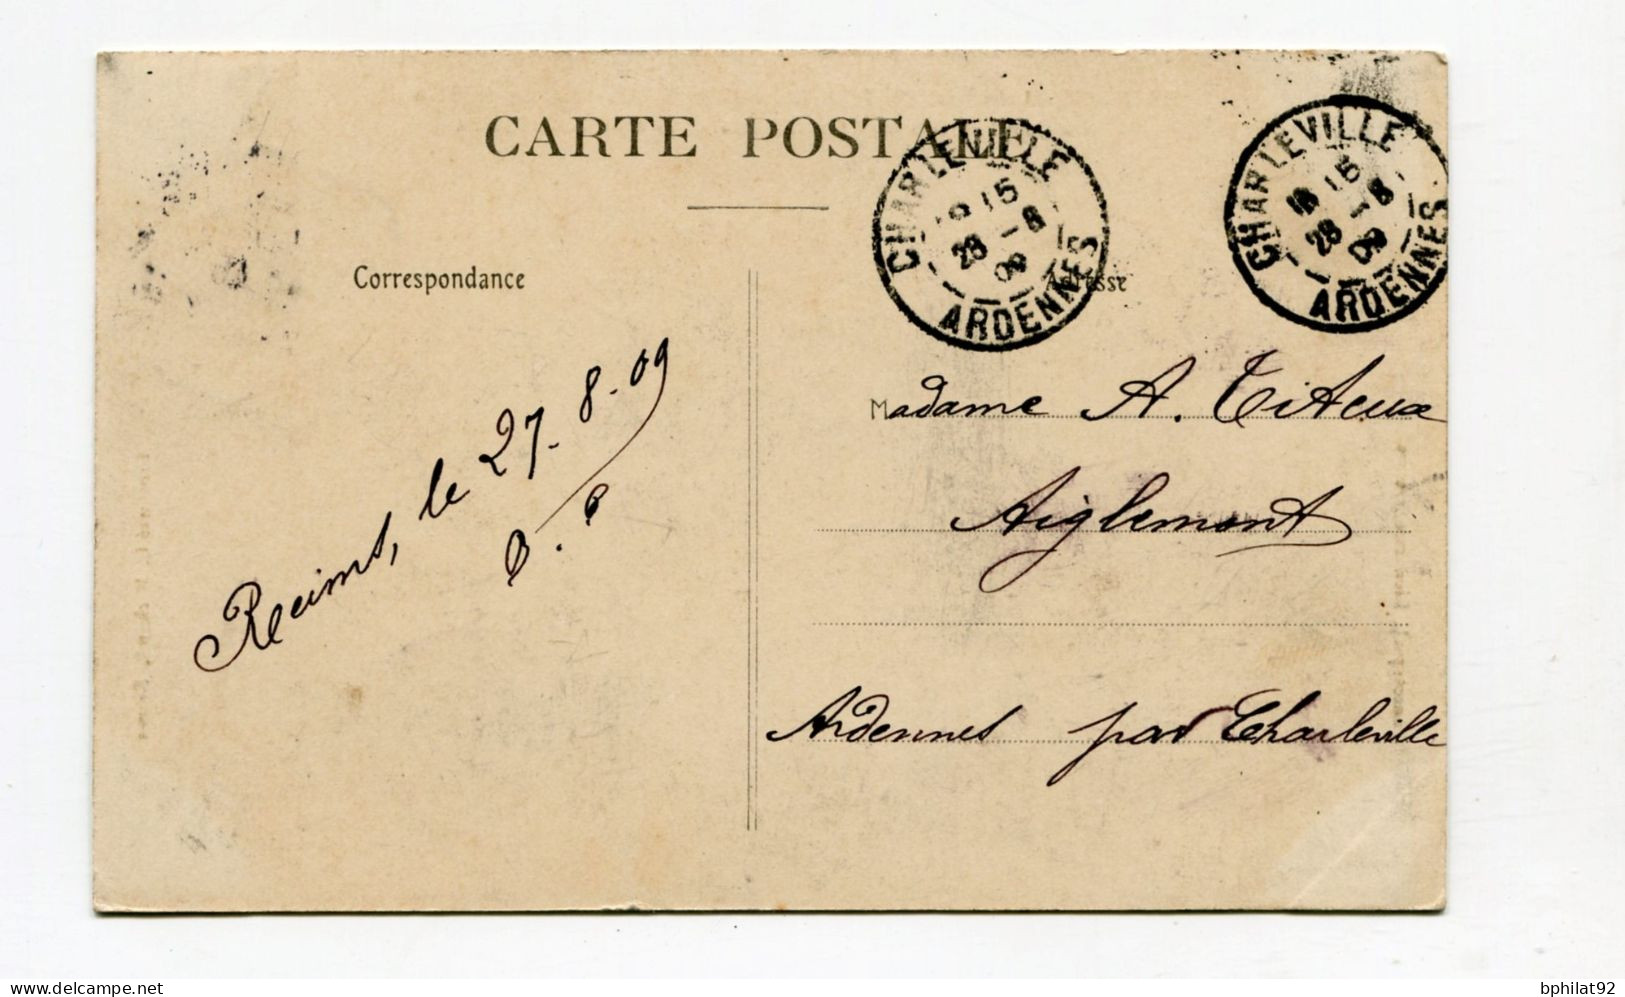 CARTE POSTALE
CHARLEVILLE
15
28 - 8
09
ARDENNES
CHARLEVILLE
15
28 - 8
09
ARDENNES
Correspondance
Adresse
Reims, le 27. 8. 09
Madame A. Titeux
Aiglemont
Ardennes par Charleville
delcampe.net
bphilat92